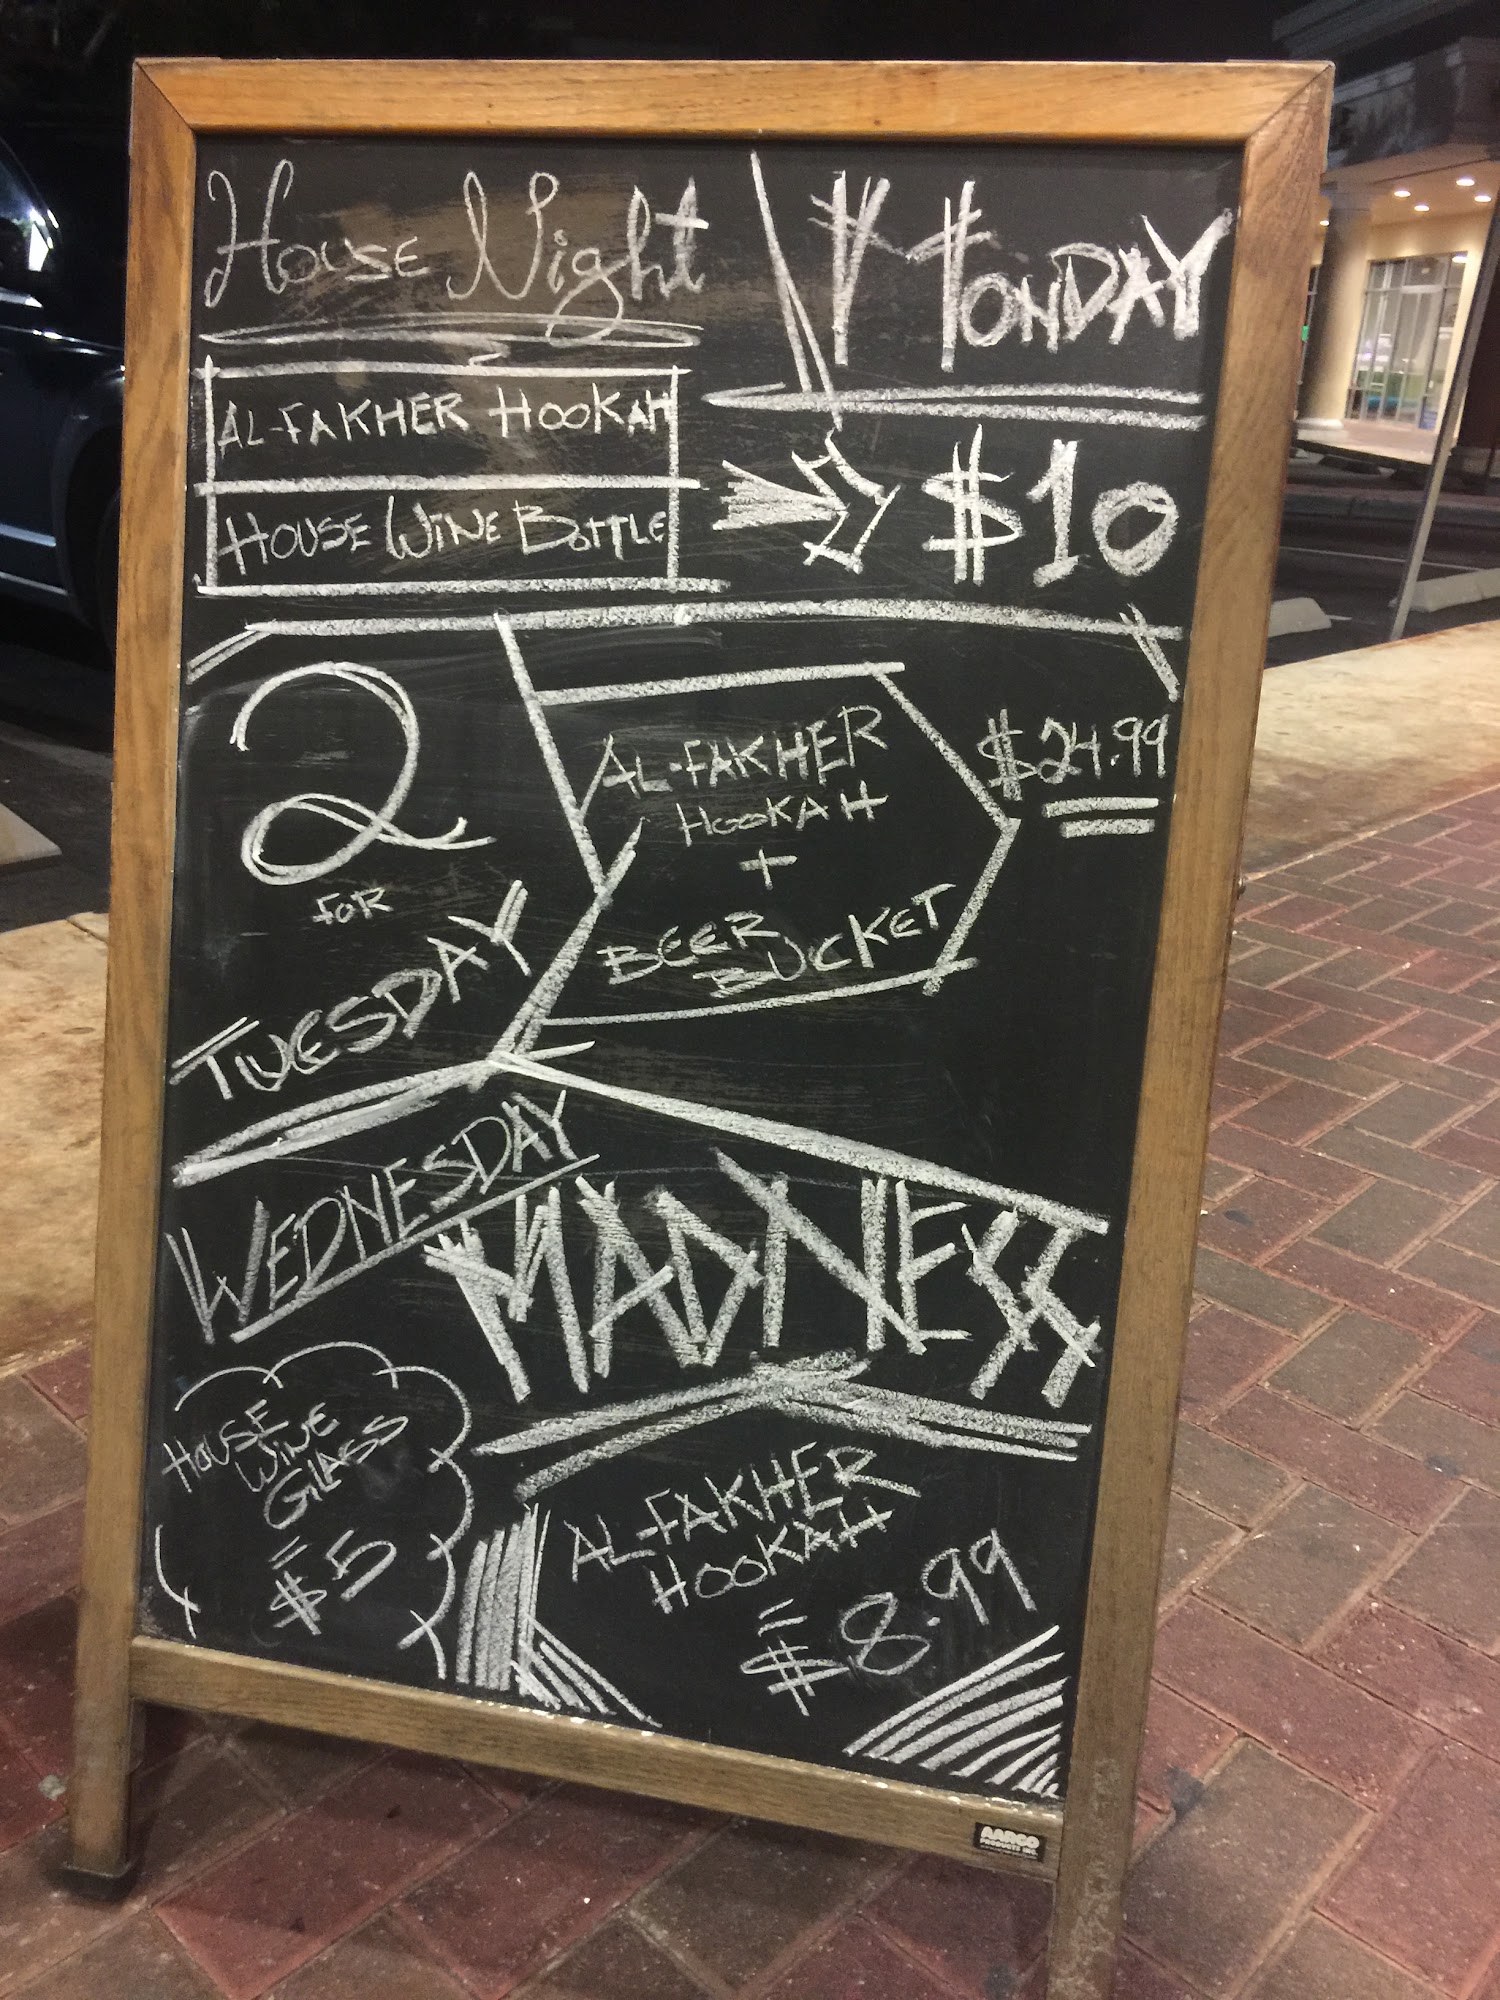 House Night
MONDAY
AL-FAKHER HOOKAH
HOUSE WINE BOTTLE
$10
2
FOR
TUESDAY
AL-FAKHER
HOOKAH
+
BEER
BUCKET
$24.99
WEDNESDAY
MADNESS
HOUSE
WINE
GLASS
=
$5
AL-FAKHER
HOOKAH
=
$8.99
AARCO
PRODUCTS INC.